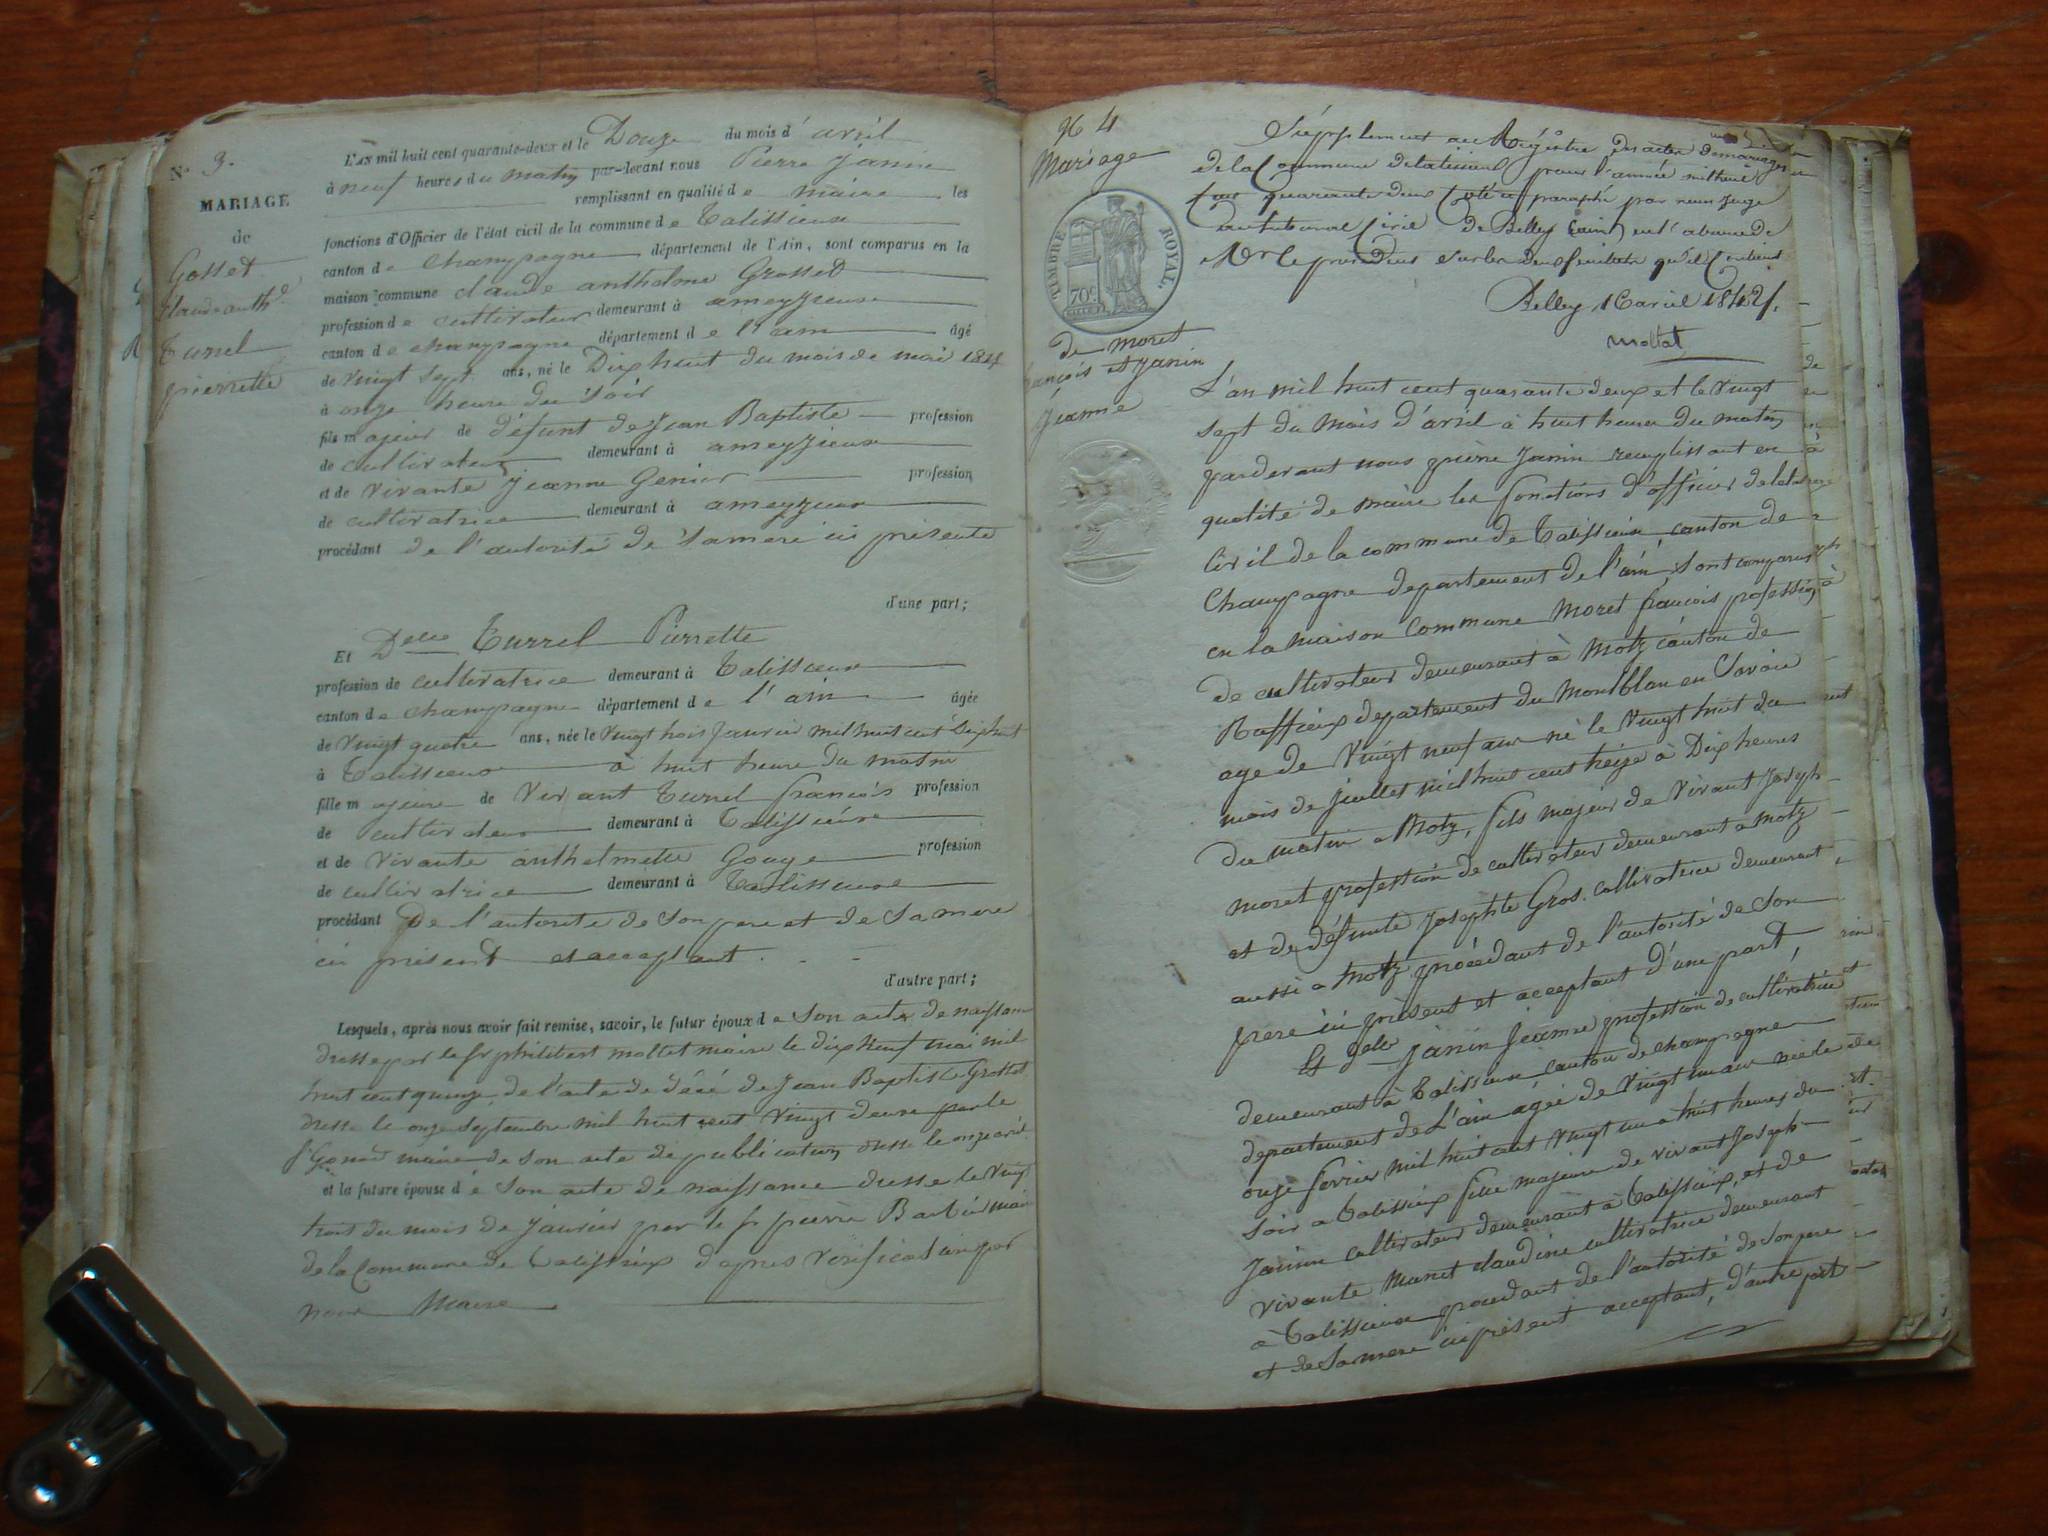 N° 3.
MARIAGE
de
Gosset
Claude anth.e
Turrel
pierrette
L'AN mil huit cent quarante-deux et le Douze du mois d'avril
à neuf heures du matin par-devant nous Pierre Janin
remplissant en qualité de maire les
fonctions d'Officier de l'état civil de la commune de Talissieux
canton de Champagne département de l'Ain, sont comparus en la
maison commune claude anthelme Grosset
profession de cultivateur demeurant à ameyzieux
canton de champagne département de l'ain âgé
de vingt sept ans, né le Dix huit du mois de mai
à onze heure du soir
fils majeur de défunt de Jean Baptiste profession
de cultivateur demeurant à ameyzieux
et de vivante Jeanne Genier profession
de cultivatrice demeurant à ameyzieux
procédant de l'autorité de sa mere ici présente
d'une part;
Et Delle Turrel Pierrette
profession de cultivatrice demeurant à Talissieux
canton de champagne département de l'ain âgée
de vingt quatre ans, née le vingt trois Janvier mil huit cent dix huit
à Talissieux à huit heure du matin
fille majeure de vivant Turrel françois profession
de cultivateur demeurant à Talissieux
et de vivante anthelmette Gouge profession
de cultivatrice demeurant à Talissieux
procédant De l'autorité de son pere et de sa mere
ici présent et acceptant
d'autre part;
Lesquels, après nous avoir fait remise, savoir, le futur époux de son acte de naissance
dressé par le sr philibert mollet maire le dix neuf mai mil
huit cent quinze, de l'acte de décé de Jean Baptiste Grosset
dressé le onze septembre mil huit cent vingt deux par le
sr maire de son acte de publication dressé le onze avril
et la future épouse de son acte de naissance dressé le vingt
trois du mois de janvier par le sr pierre Barbier maire
de la Commune de Talissieux d'apres verification par
nous Maire
N° 4
Mariage
TIMBRE ROYAL
70c.
de moret
françois et Janin
Jeanne
Supplement au Régistre des actes de mariages
de la Commune de talissieux pour l'année mil huit
cent quarante deux Coté et paraphé par nous juge
au tribunal Civil de Belley (ain) en l'absence de
Mr le president sur les deux feuillets qu'il Contient
Belley 16 avril 1842.
mollet
L'an mil huit cent quarante deux et le vingt
sept du mois d'avril à huit heures du matin
pardevant nous pierre Janin remplissant en
qualité de maire les fonctions d'officier de letat
Civil de la commune de Talissieux canton de
Champagne departement de l'ain, sont comparus
en la maison commune Moret françois profession
de cultivateur demeurant à Motz canton de
Ruffieux departement du Montblan en Savoie
age de vingt neuf ans né le vingt huit du
mois de juillet mil huit cent treize à Dix heures
du matin a Motz, fils majeur de vivant Joseph
moret profession de cultivateur demeurant a motz
et de défunte Josephte Gros cultivatrice demeurant
aussi a Motz procédant de l'autorité de son
pere ici présent et acceptant d'une part,
Et Delle Janin Jeanne profession de cultivatrice
demeurant à Talissieux canton de champagne
departement de L'ain agée de vingt un ans née le
onze fevrier mil huit cent vingt un a huit heures du
soir a Talissieux fille majeure de vivant Joseph
Janin cultivateur demeurant à Talissieux, et de
vivante Manet claudine cultivatrice demeurant
a Talissieux procédant de l'autorité de son pere
et de sa mere ici présent acceptant, d'autre part